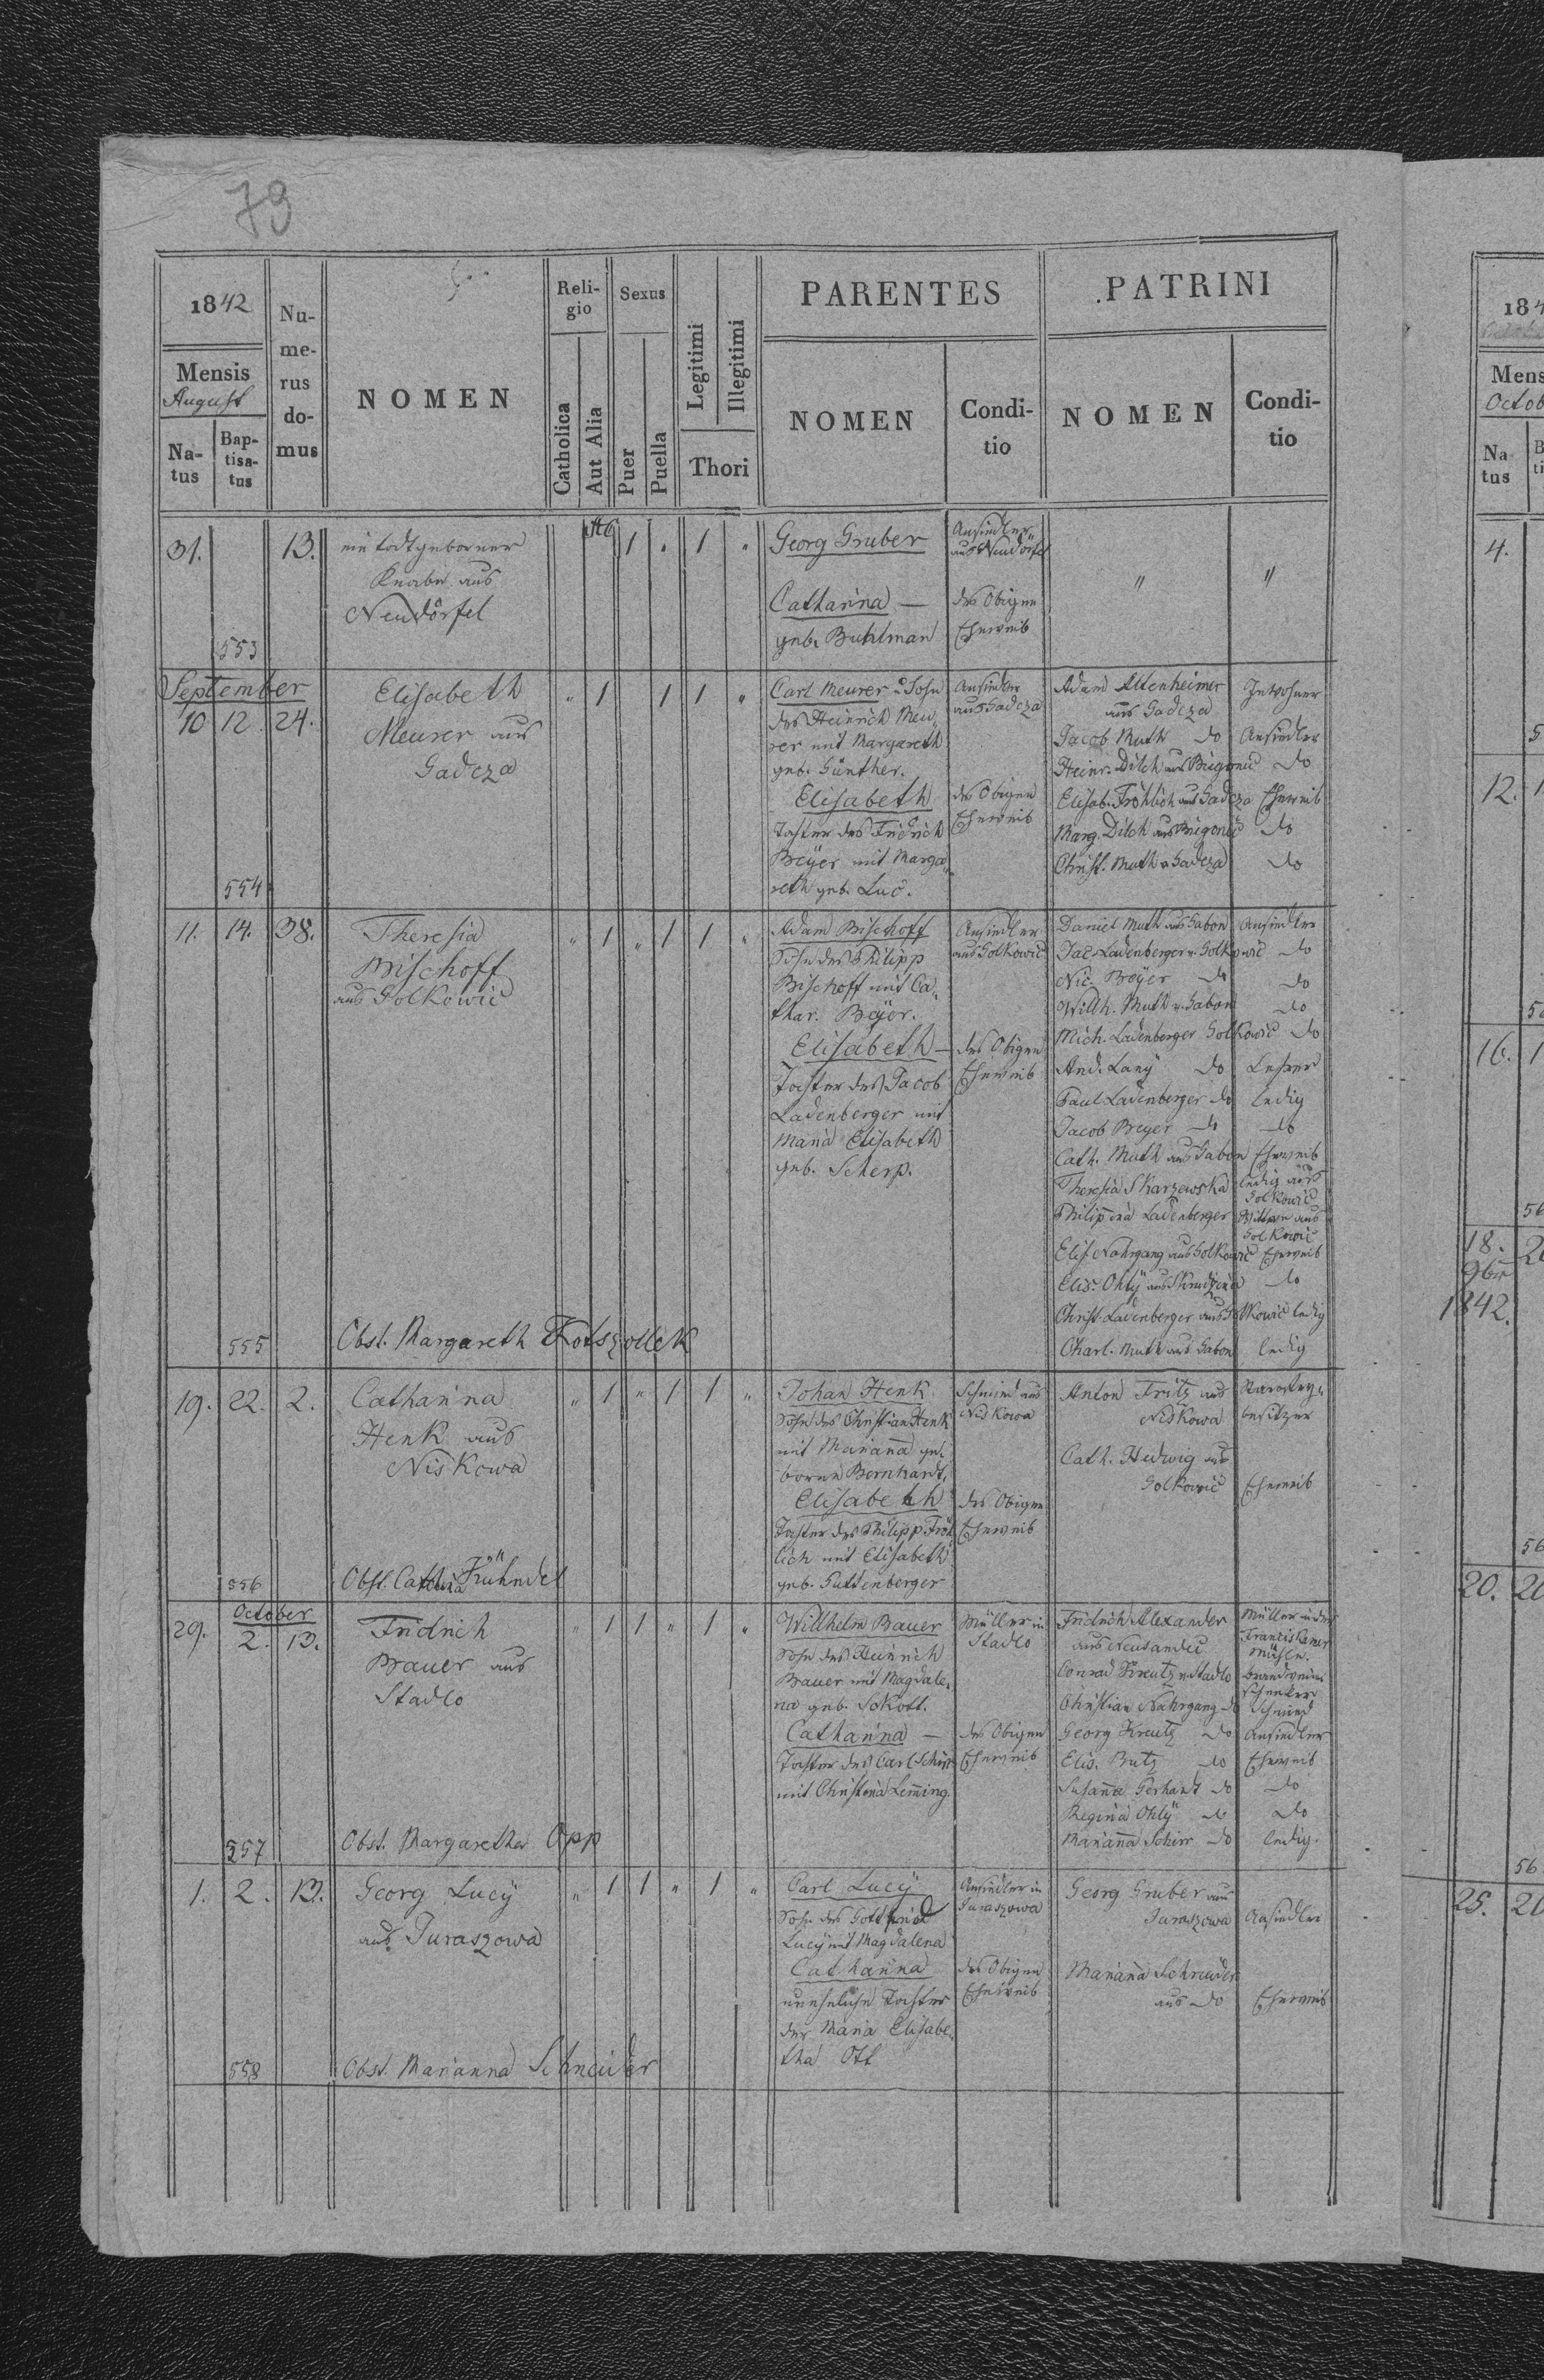 79
1842
Mensis
August
Na-
tus
Bap-
tisa-
tus
Nu-
me-
rus
do-
mus
NOMEN
Reli-
gio
Catholica
Aut Alia
Sexus
Puer
Puella
Legitimi
Illegitimi
Thori
PARENTES
NOMEN
Condi-
tio
PATRINI
NOMEN
Condi-
tio
31. 13. ein todtgeborner
Knabe aus
Neudörfel
553
1 " 1 "
Georg Gruber
Catharina —
geb. Buhlman
Ansiedler
aus Neudörfel
des Obigen
Eheweib
" "
September
10 12. 24.
554
Elisabeth
Meurer aus
Gadcza
" 1 1 1 "
Carl Meurer Sohn
des Heinrich Meu-
rer mit Margareth
geb. Günther.
Elisabeth
Tochter des Fridrich
Beyer mit Marga-
reth geb. Luc.
Ansiedler
aus Gadcza
des Obigen
Eheweib
Adam Altenheimer Inwohner
aus Gadcza
Jacob Muth do Ansiedler
Heinr. Dilch aus do
Elisab. Fröhlich aus Gadcza Eheweib
Marg. Dilch aus do
Christ. Muth v. Gadcza do
11. 14. 38.
555
Theresia
Bischoff
aus Golkowic
Obst. Margareth
" 1 " 1 1 "
Adam Bischoff
Sohn des Philipp
Bischoff mit Ca-
thar. Beyer.
Elisabeth —
Tochter des Jacob
Ladenberger mit
Maria Elisabeth
geb. Scherp.
Ansiedler
aus Golkowic
des Obigen
Eheweib
Daniel Muth aus Gabon Ansiedler
Jac. Ladenberger v. Golkowic do
Nic. Beyer do do
Willh. Muth v. Gabon do
Mich. Ladenberger Golkowic do
And. Lany do Lehrer
Paul Ladenberger do ledig
Jacob Beyer do do
Cath. Muth aus Gabon Eheweib
Theresia Skarzewska ledig aus
Golkowic
Philippina Ladenberger Wittwe aus
Golkowic
Elis. Nahrgang aus Golkowic Eheweib
Elis. Ohly aus do
Christ. Ladenberger aus Golkowic ledig
Charl. Muth aus Gabon ledig
19. 22. 2.
556
Catharina
Henk aus
Niskowa
Obst. Catharina Kühndel
" 1 " 1 1 "
Johan Henk
Sohn des Christian Henk
mit Mariana ge-
borene Bernhardt.
Elisabeth
Tochter des Philipp Fröh-
lich mit Elisabeth
geb. Guttenberger
Schmied aus
Niskowa
des Obigen
Eheweib
Anton Fritz aus
Niskowa besitzer
Cath. Hedwig aus
Golkowic Eheweib
October
29. 2. 13.
557
Fridrich
Bauer aus
Stadlo
Obst. Margaretha Opp
" 1 1 " 1 "
Willhelm Bauer
Sohn des Heinrich
Bauer mit Magdale-
na geb. Skott.
Catharina —
Tochter des Carl Schirr
mit Christina Leming.
Müller in
Stadlo
des Obigen
Eheweib
Fridrich Alexander Müller in der
aus Neusandec Franciskaner
Mühle.
Conrad Kreutz v. Stadlo brandwein
schenker
Christian Nahrgang do Schmied
Georg Kreutz do Ansiedler
Elis. Butz do Eheweib
Susanna Gerhardt do do
Regina Ohly do do
Marianna Schirr do ledig.
1. 2. 13.
558
Georg Lucy
aus Juraszowa
Obst. Marianna Schneider
" 1 1 " 1 "
Carl Lucy
Sohn des Gottfried
Lucy mit Magdalena
Catharina
uneheliche Tochter
der Maria Elisabe-
tha Ott
Ansiedler in
Juraszowa
des Obigen
Eheweib
Georg Gruber aus
Juraszowa Ansiedler
Mariana Schneider
aus do Eheweib
184
Mens
Octob
Na
tus
4.
12.
16.
18.
9br
1842.
20. 20
25. 20